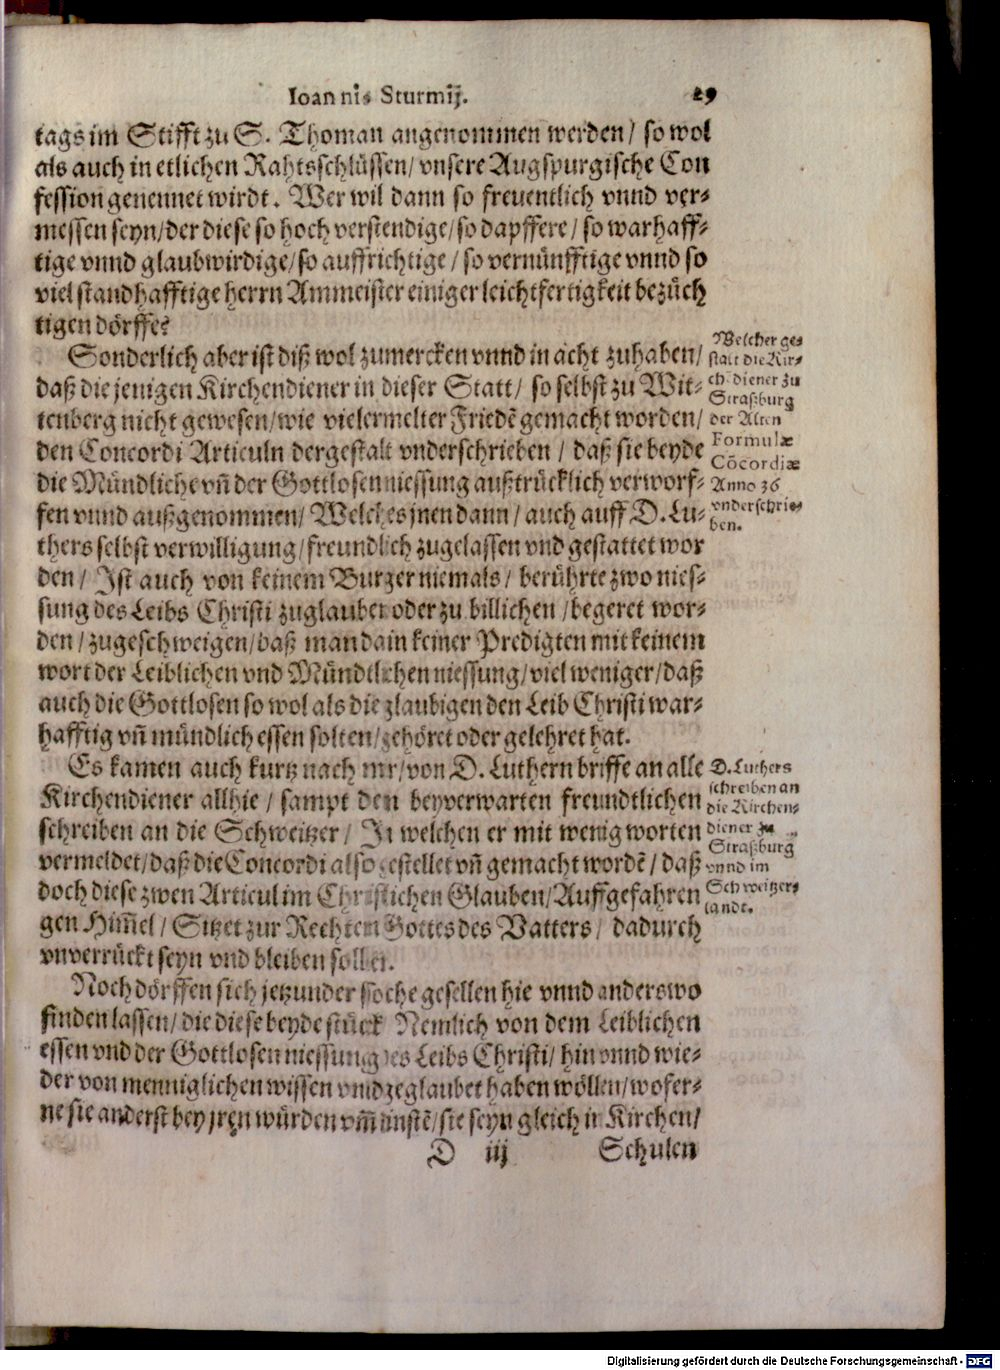 Ioannis Sturmij. 29
tags im Stifft zu S. Thoman angenommen werden/ so wol
als auch in etlichen Rahtsschlüssen/ vnsere Augspurgische Con
fession genennet wirdt. Wer wil dann so freuentlich vnnd ver-
messen seyn/ der diese so hoch verstendige/ so dapffere/ so warhaff-
tige vnnd glaubwirdige/ so auffrichtige/ so vernünfftige vnnd so
viel standhafftige herrn Ammeister einiger leichtfertigkeit bezüch
tigen dörffe?
Sonderlich aber ist diß wol zumercken vnnd in acht zuhaben/
daß die jenigen Kirchendiener in dieser Statt/ so selbst zu Wit-
tenberg nicht gewesen/ wie vielermelter Friedẽ gemacht worden/
den Concordi Articuln dergestalt vnderschrieben/ daß sie beyde
die Mündliche vñ der Gottlosen niessung außtrücklich verworf-
fen vnnd außgenommen/ Welches jnen dann/ auch auff D. Lu-
thers selbst verwilligung/ freundlich zugelassen vnd gestattet wor
den/ Ist auch von keinem Burger niemals/ berührte zwo nies-
sung des Leibs Christi zuglauben oder zu billichen/ begeret wor-
den/ zugeschweigen/ daß man da in keiner Predigten mit keinem
wort der Leiblichen vnd Mündtlichen niessung/ viel weniger/ daß
auch die Gottlosen so wol als die glaubigen den Leib Christi war-
hafftig vñ mündlich essen solten/ gehöret oder gelehret hat.
Welcher ge-
stalt die Kir-
chẽdiener zu
Straßburg
der Alten
Formulæ
Cõcordiæ
Anno 36
vnderschrie-
ben.
Es kamen auch kurtz nach mir/ von D. Luthern briffe an alle
Kirchendiener allhie/ sampt den beyverwarten freundtlichen
schreiben an die Schweitzer/ In welchen er mit wenig worten
vermeldet/ daß die Concordi also gestellet vñ gemacht wordẽ/ daß
doch diese zwen Articul im Christlichen Glauben/ Auffgefahren
gen Him̃el/ Sitzet zur Rechten Gottes des Vatters/ dadurch
vnverrückt seyn vnd bleiben sollen.
D. Luthers
schreiben an
die Kirchen-
diener zu
Straßburg
vnnd im
Schweitzer-
landt.
Noch dörffen sich jetzunder solche gesellen hie vnnd anderswo
finden lassen/ die diese beyde stück Nemlich von dem Leiblichen
essen vnd der Gottlosen niessung des Leibs Christi/ hin vnnd wie-
der von menniglichen wissen vnnd geglaubet haben wöllen/ wofer-
ne sie anderst bey jren würden vm̃ dinstẽ/ sie seyn gleich in Kirchen/
D iij Schulen
Digitalisierung gefördert durch die Deutsche Forschungsgemeinschaft - DFG